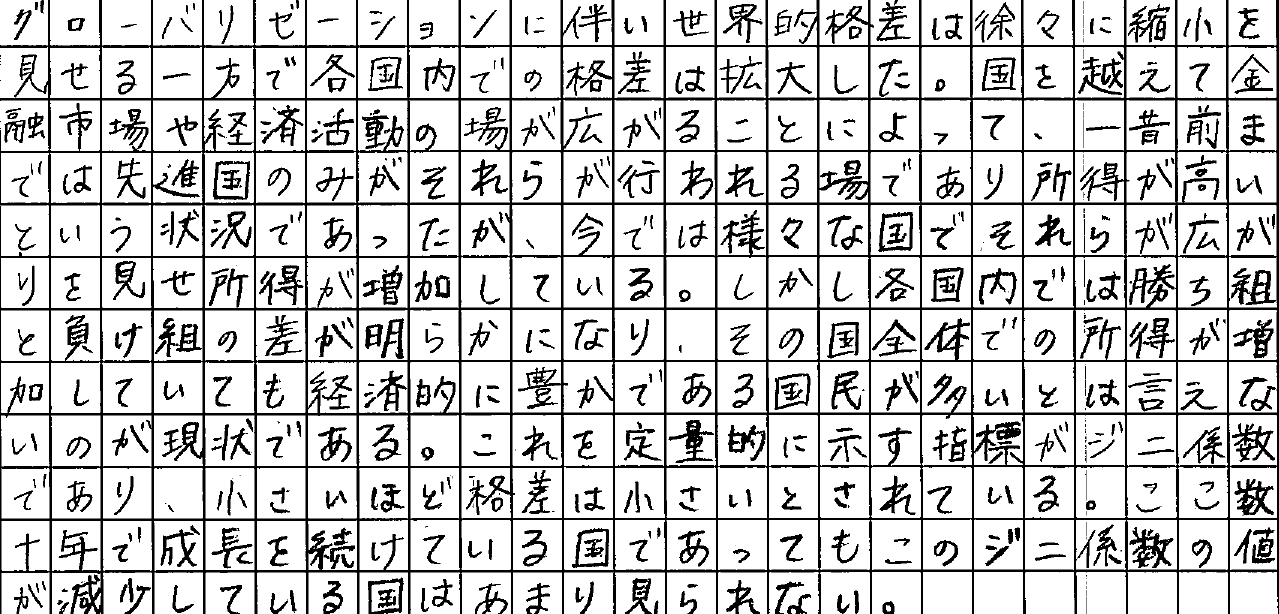 グローバリゼーションに伴い世界的格差は徐々に縮小を
見せる一方で各国内での格差は拡大した。国を越えて金
融市場や経済活動の場が広がることによって、一昔前ま
では先進国のみがそれらが行われる場であり所得が高い
という状況であったが、今では様々な国でそれらが広が
りを見せ所得が増加している。しかし各国内では勝ち組
と負け組の差が明らかになり、その国全体での所得が増
加していても経済的に豊かである国民が多いとは言えな
いのが現状である。これを定量的に示す指標がジニ係数
であり、小さいほど格差は小さいとされている。ここ数
十年で成長を続けている国であってもこのジニ係数の値
が減少している国はあまり見られない。